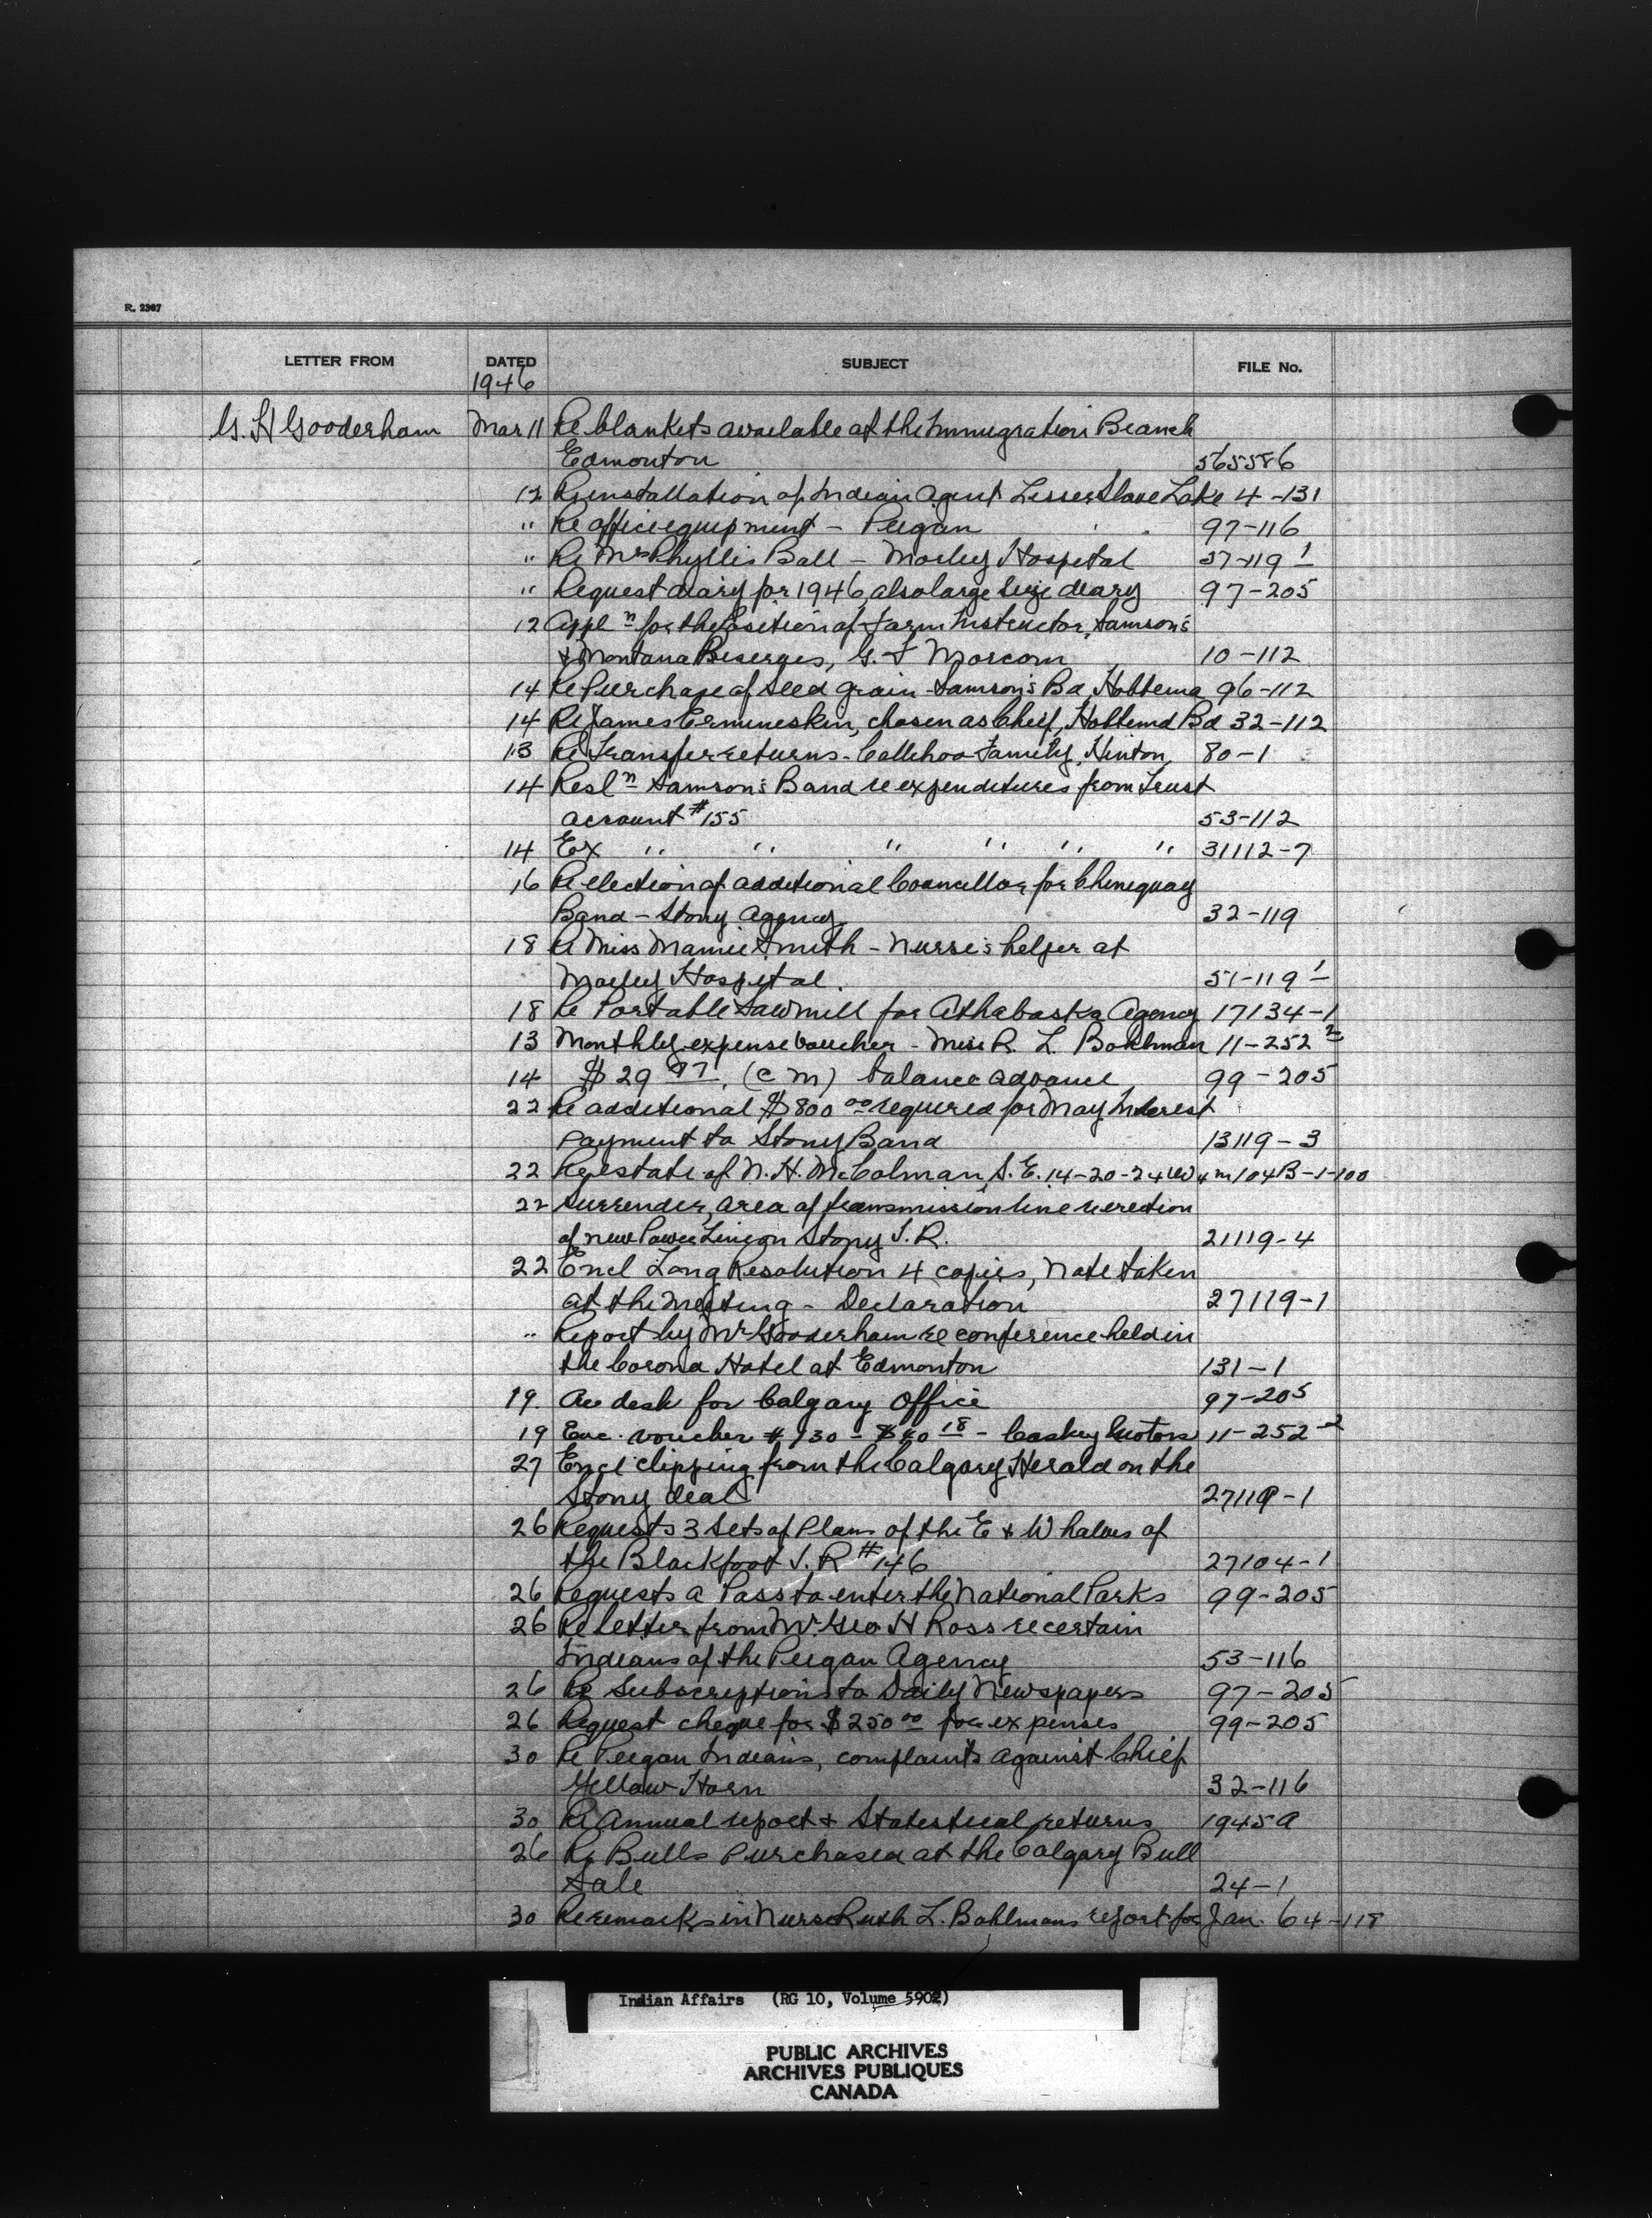 R. 2307
LETTER FROM DATED SUBJECT FILE No.
1946
G. H Gooderham Mar 11 Re blankets available at the Immigration Branch
Edmonton 565586
12 Re installation of Indian Agent Lesser Slave Lake 4-131
" Re office equipment - Peigan 97-116
" Re Mrs Phyllis Ball - Morley Hospital 37-119 1
" Request diary for 1946, also large size diary 97-205
12 Appl n for the Position of Farm Instructor, Samson's
& Montana Reserves, G. F Morcom 10-112
14 Re Purchase of seed grain - Samson's Bd, Hobbema 96-112
14 Re James Ermineskin, chosen as Chief, Hobbema Bd 32-112
13 Re Transfer returns - Callihoo Family, Hinton 80-1
14 Resl n Samson's Band re expenditures from Trust
account #155 53-112
14 Ex " " " " " " 31112-7
16 Re election of additional Councillor for Chiniquay
Band - Stony Agency 32-119
18 Re Miss Mamie Smith - Nurse's helper at
Morley Hospital. 51-119 1
18 Re Portable Sawmill for Athabaska Agency 17134-1
13 Monthly expense voucher - Miss R. L. Bohlman 11-252 2
14 $29 97. (c m) balance advance 99-205
22 Re additional $800 00 required for May Interest
payment to Stony Band 13119-3
22 Re estate of N. H. McColman, S. E. 14-20-24 W 4 m 104B-1-100
22 Surrender, area of transmission line re erection
of new Power Line on Stony I. R. 21119-4
22 Encl Long Resolution 4 copies, Note taken
at the meeting - Declaration 27119-1
" Report by Mr Gooderham re conference held in
the Corona Hotel at Edmonton 131-1
19. Re desk for Calgary Office 97-205
19 Enc. voucher # 130 - $40 18 - Caskey Motors 11-252-2
27 Encl clipping from the Calgary Herald on the
Stony deal 27119-1
26 Requests 3 sets of Plans of the E & W halves of
the Blackfoot I. R #146 27104-1
26 Requests a Pass to enter the National Parks 99-205
26 Re letter from Mr. Geo H Ross re certain
Indians of the Peigan Agency 53-116
26 Re Subscriptions to Daily Newspapers 97-205
26 Request cheque for $250 00 for expenses 99-205
30 Re Peigan Indians, complaints against Chief
Yellow Horn 32-116
30 Re Annual report & Statistical returns 1945A
26 Re Bulls Purchased at the Calgary Bull
Sale 24-1
30 Re remarks in Nurse Ruth L. Bohlmans report for Jan. 64-118
Indian Affairs (RG 10, Volume 5902)
PUBLIC ARCHIVES
ARCHIVES PUBLIQUES
CANADA